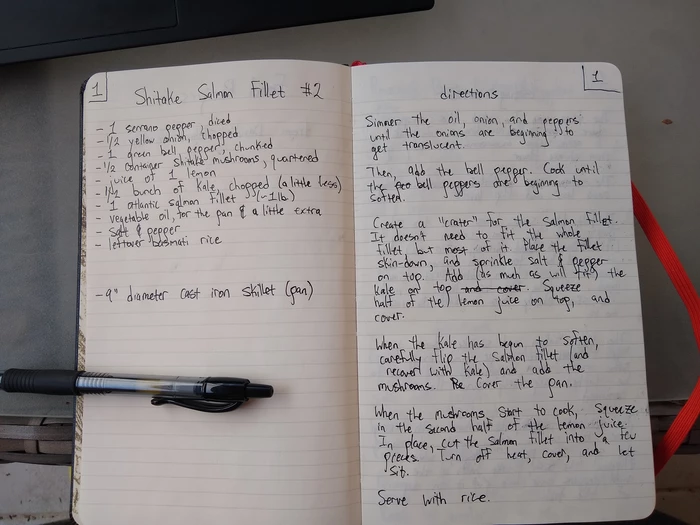 1
Shitake Salmon Fillet #2
- 1 serrano pepper, diced
- 1/2 yellow onion, chopped
- 1 green bell pepper, chunked
- 1/2 container Shitake mushrooms, quartered
- juice of 1 lemon
- 1/2 bunch of kale, chopped (a little less)
- 1 atlantic salmon fillet (~1lb)
- vegetable oil, for the pan & a little extra
- salt & pepper
- leftover basmati rice
- 9" diameter cast iron skillet (pan)
1
directions
Simmer the oil, onion, and peppers
until the onions are beginning to
get translucent.
Then, add the bell pepper. Cook until
the bell peppers are beginning to
soften.
Create a "crater" for the salmon fillet.
It doesn't need to fit the whole
fillet, but most of it. Place the fillet
skin-down, and sprinkle salt & pepper
on top. Add (as much as will fit) the
kale on top and cover. Squeeze
half of the lemon juice on top, and
cover.
When the kale has begun to soften,
carefully flip the salmon fillet (and
recover with kale) and add the
mushrooms. Cover the pan.
When the mushrooms start to cook, squeeze
in the second half of the lemon juice.
In place, cut the salmon fillet into a few
pieces. Turn off heat, cover, and let
sit.
Serve with rice.